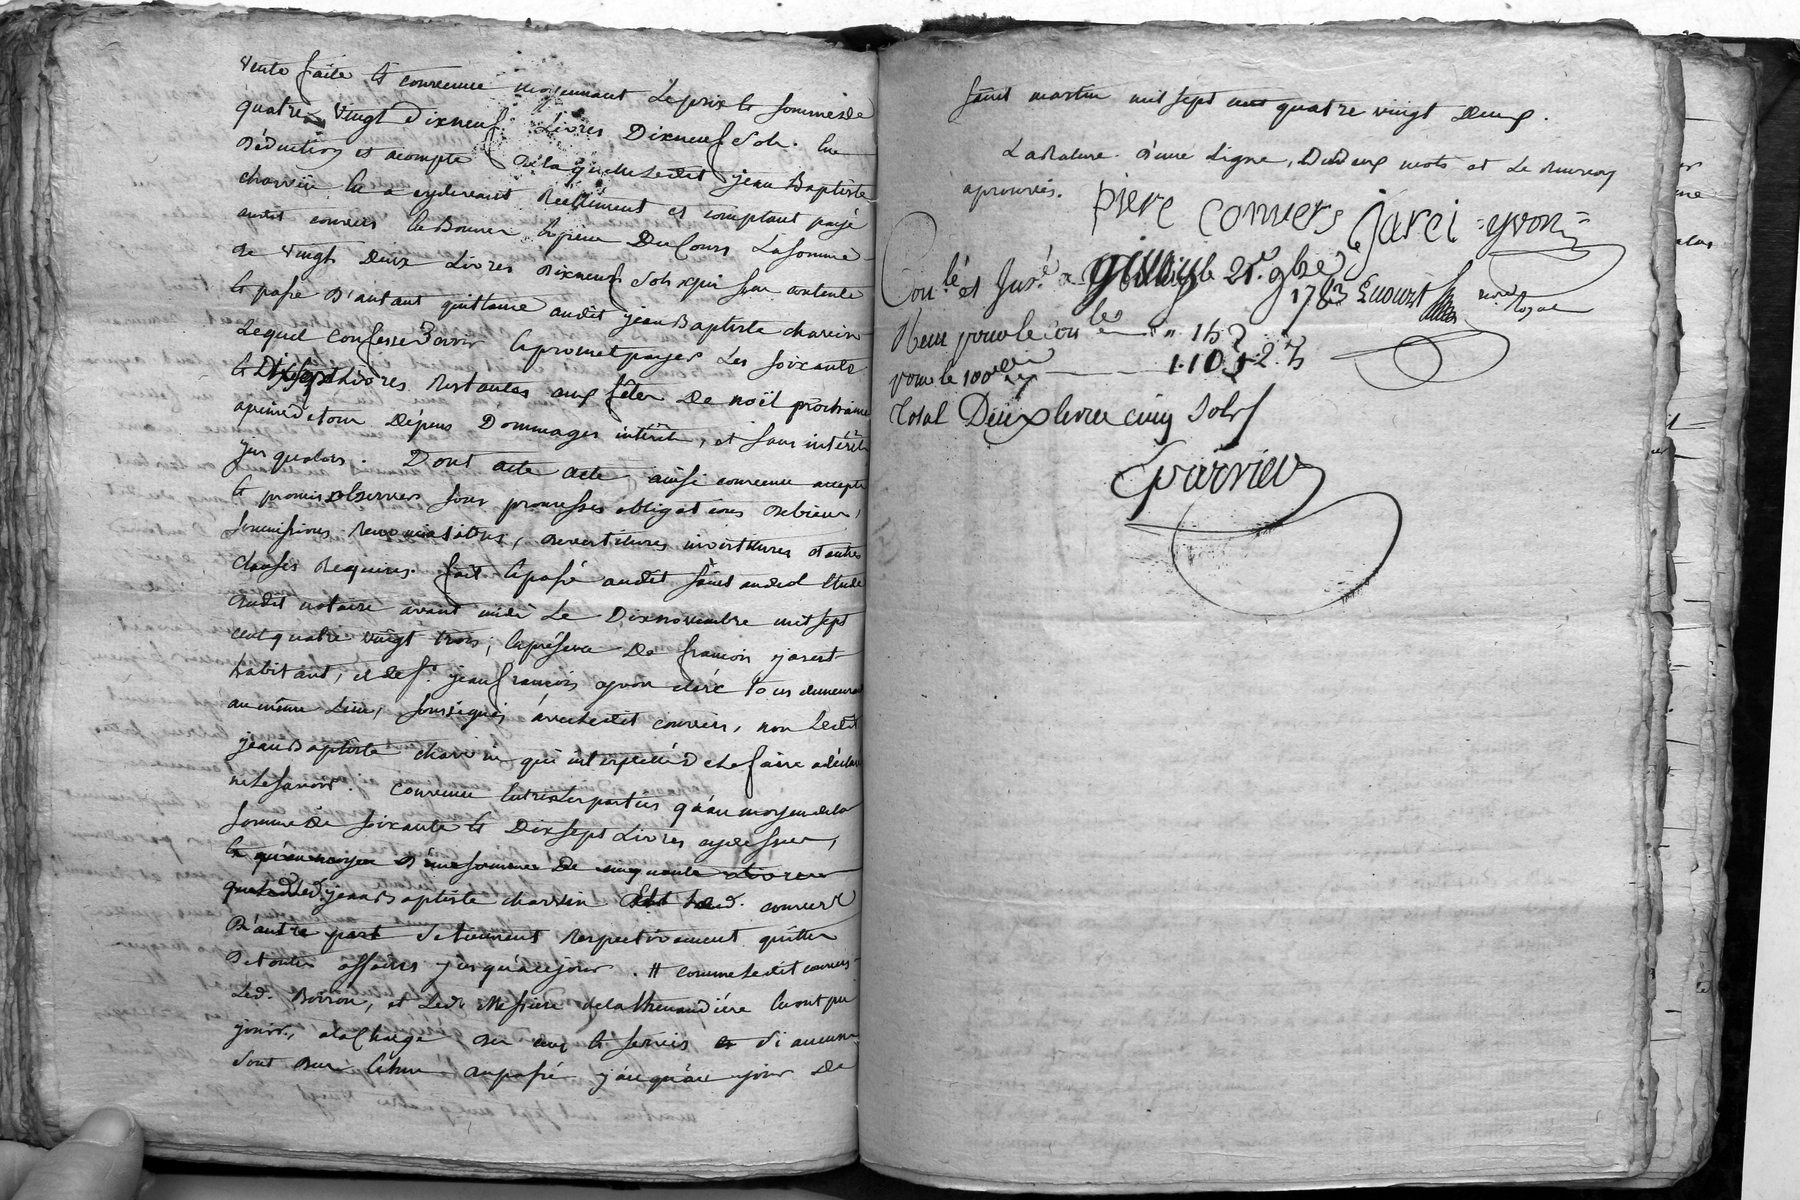 vente faite et convenue moyennant le prix et somme de
quatre vingt dixneuf livres dixneuf sols. En
déduction et acompte de laquelle ledit jean Baptiste
charvin en a cydevant réellement et comptant payé
audit convers en Bonnes Espèces Du Cours La somme
de vingt Deux Livres dixneuf sols qui sen contente
et passe d'autant quittance audit jean Baptiste charvin
Lequel confesse Devoir et promet payer Les soixante
et Dixsept Livres restantes aux fêtes De noël prochaine
apeine de tous Dépens Dommages intérêts, et sans intérêts
jusqualors. Dont acte acte ainsi convenu accepté
et promis observer sous promesses obligations de biens,
soumissions renonciations, devestitures investitures et autres
clauses requises. fait et passé audit saint andeol Etude
dudit notaire avant midi Le Dix novembre mil sept
cent quatre vingt trois, en présence De françois jarest
habitant, et de sr. jean françois yvon clerc tous demeurant
au même Lieu, soussignés avec ledit convers, non Ledit
jean Baptiste charvin qui interpellé de le faire a déclaré
ne le savoir. convenu Entre les parties qu'au moyen de la
somme de soixante et Dixsept Livres cydessus,
et qu'au moyen d'une somme De cinquante Livres
que led. jean Baptiste charvin Et led. convers
D'autre part se tiennent respectivement quittes
de toutes affaires jusqu'à ce jour. # comme ledit convers
Led. Boiron, et Led. Messire de la thenaudiére en ont pu
jouir, a la charge des cens et servis et si aucuns
sont dus Et en a passé jusqu'au jour De
saint martin mil sept cent quatre vingt Deux.
La rature d'une Ligne, De Deux mots et Le renvoy
aprouvés.
piere convers jarei yvon
Con.lé et Jns.é a Givors le 21.e 9bre
1783 not. Royal
Reçu pour le con.le " 15
pour le 100eme 1-10 2. 5
Total Deux livres cinq sols